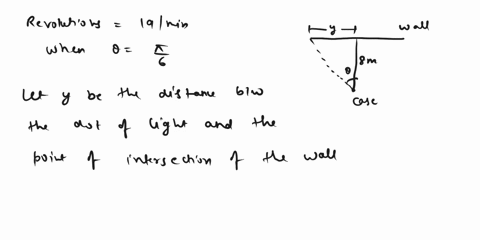 Revolutions = 19/min
when θ = π/6
Let y be the distame b/w
the dot of light and the
point of intersection of the wall
y
wall
8m
θ
case